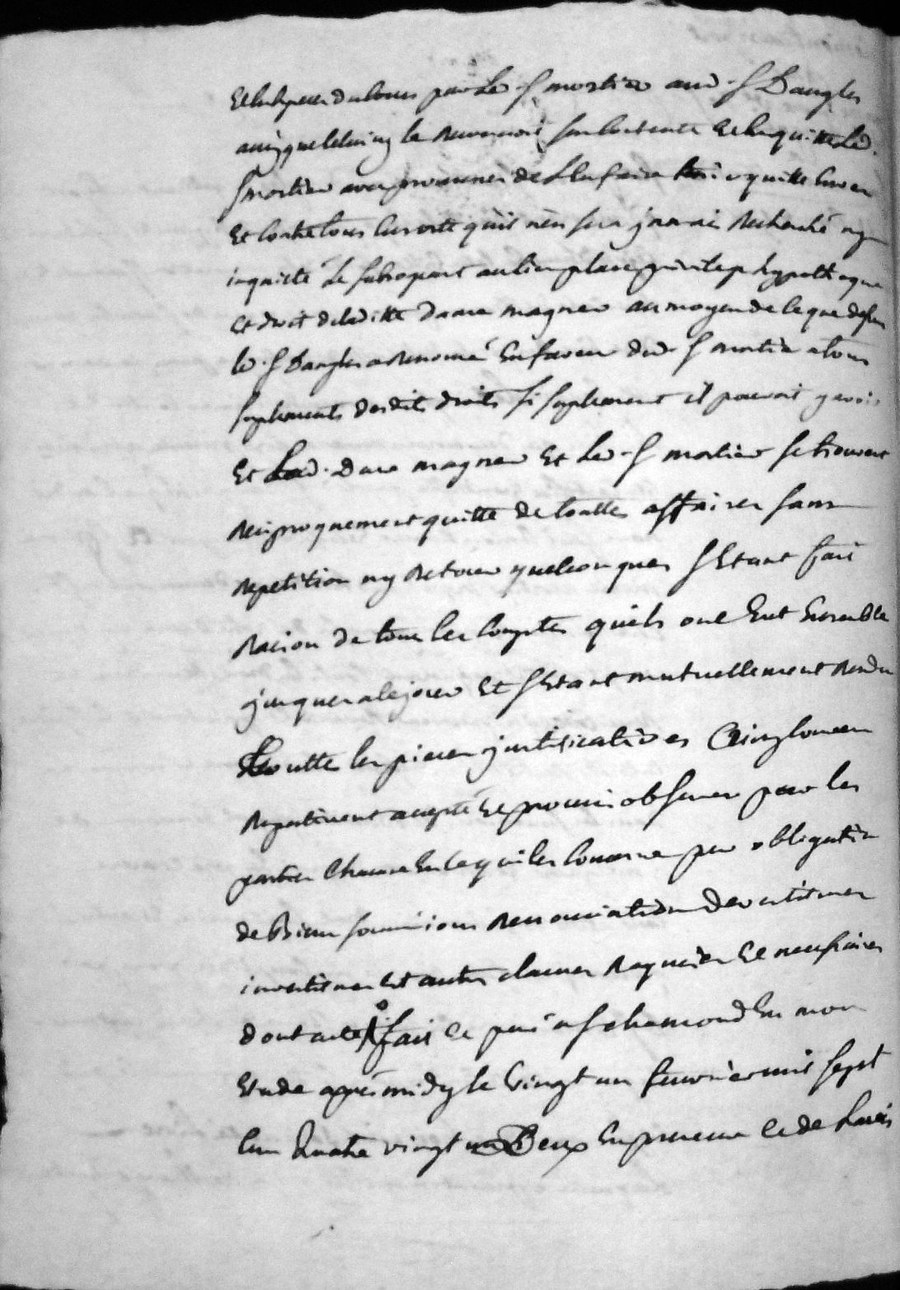 par Le Sr mortier aud Sr Dangles
le Recevoir Et le quitte Led.
Sr mortier avec promesse de quitte Envers
Et Contre tous En sorte quil nen sera jamais Recherché ny
inquieté Le subrogeant au lieu place privilege hypotheque
Et droit de laditte Dame magnier au moyen de ce que dessus
le Sr Dangles a Renoncé En faveur dud Sr mortier a tous
suplements desdits droits si suplement il pouvoit y avoir
Et Lad. Dame magnier Et Led Sr mortier se trouvent
Reciproquement quitte de touttes affaires sans
Repetition ny Retour quelconques s'Etant fait
Raison de tous les Comptes quils ont Eut Ensemble
jusques a ce jour Et s'Etant mutuellement Rendu
touttes les pieces justificatives Ainsy Convenu
Respectivement accepté Et promis observer par les
parties Chacune En ce qui les Concerne par obligation
de Biens soumissions Renonciations
Et autres clauses Requises Et necessaires
dont acte fait Et passé a St chamond En mon
Etude après midy le vingt un fevrier mil sept
Cent Quatre vingt Deux En presence Et de